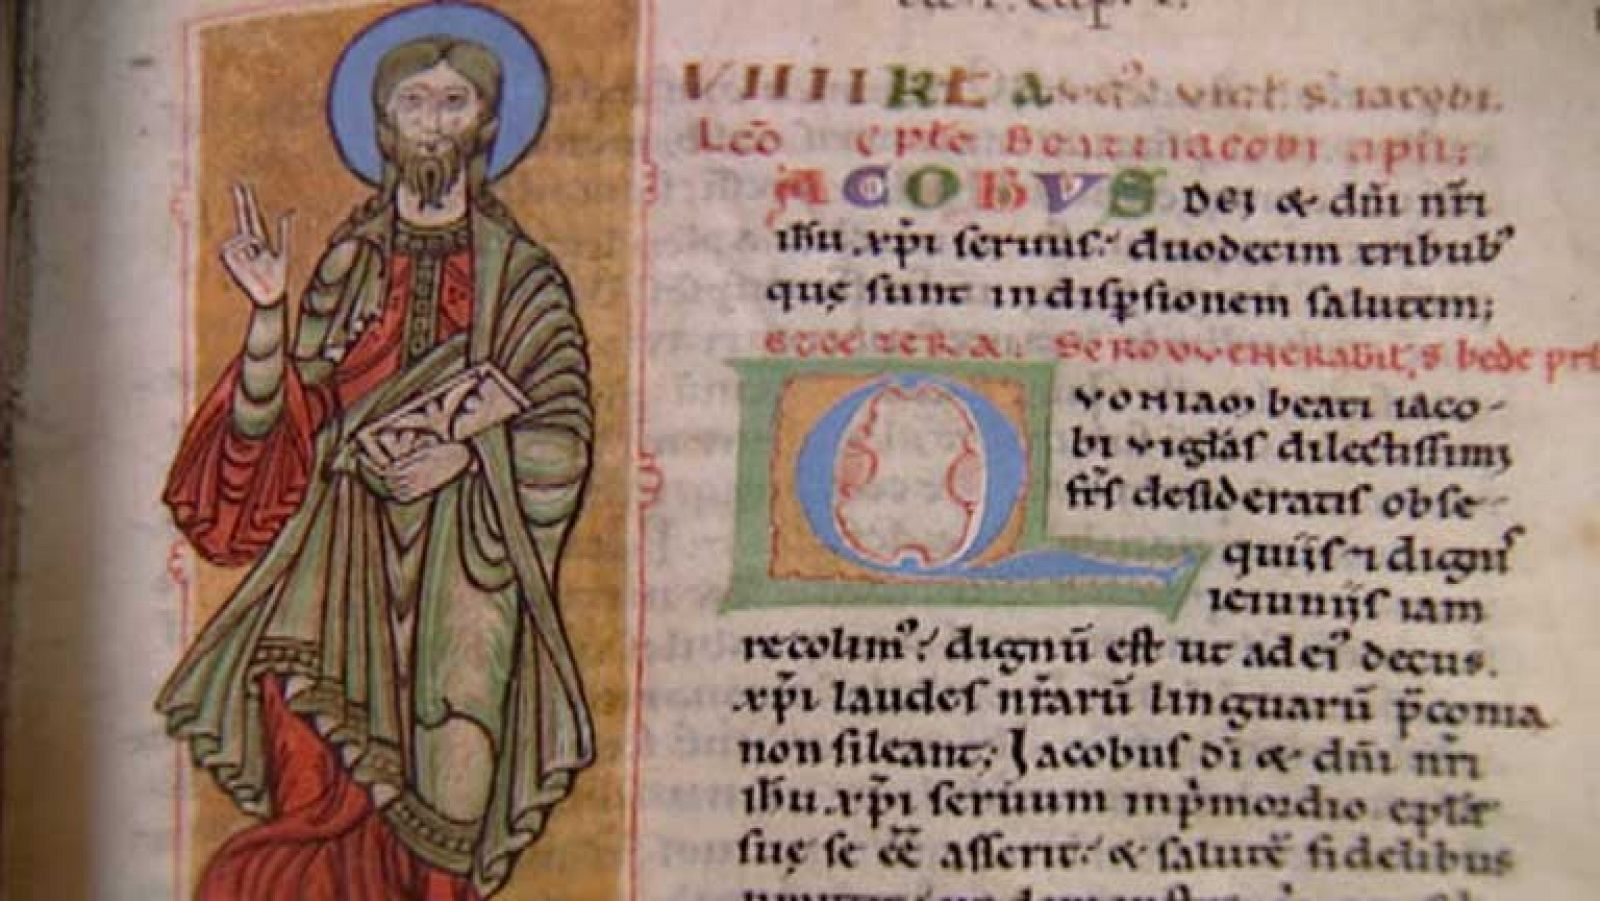 VIIII KŁ A
Lcō epłe Beati iacobi apłi;
IACOBVS Dei & dñi nr̄i
ihu xp̄i seruus: duodecim tribub'
quę sunt in disp̄sionem salutem;
ET CETERA. SERMO VENERABILIS bede prī
QVONIAM beati iaco-
bi vigłas dilectissimi
fr̄s desideratis obse-
quiis & dignis
ieiuniis iam
recolim': dignū est ut ad ei' decus.
xp̄i laudes nr̄arū linguarū p̄conia
non sileant; Jacobus d̄i & dñi nr̄i
ihu xp̄i seruum in p̄mordio epłę
suę se ēē asserit: & salutē fidelibus